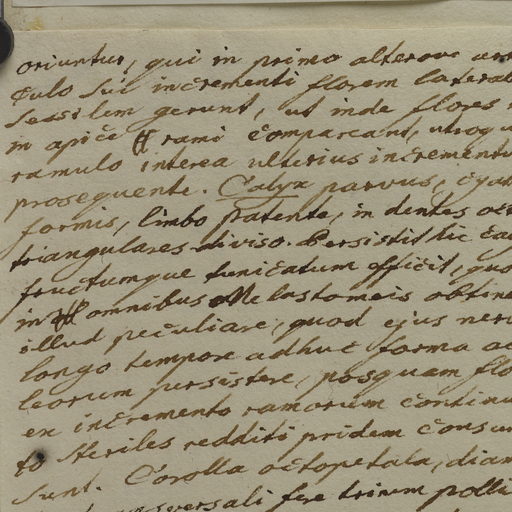 oriuntur, qui in primo alterove arti
culo sui incrementi florem lateral
sessilem gerunt, ut inde flores
in apice rami compareant, utroqu
ramulo interea ulterius incrementu
prosequente. Calyx parvus, cyat
formis, limbo patente, in dentes oct
triangulares diviso. Persistit hic ca
fructumque tunicatum efficit, quo
in omnibus Melastomeis obtine
illud peculiare, quod ejus nerv
longo tempore adhuc forma a
leorum persistere, posquam flo
ex incremento ramorum continu
to steriles redditi pridem consum
sunt. Corolla octopetala, diam
transversali fere trium polli